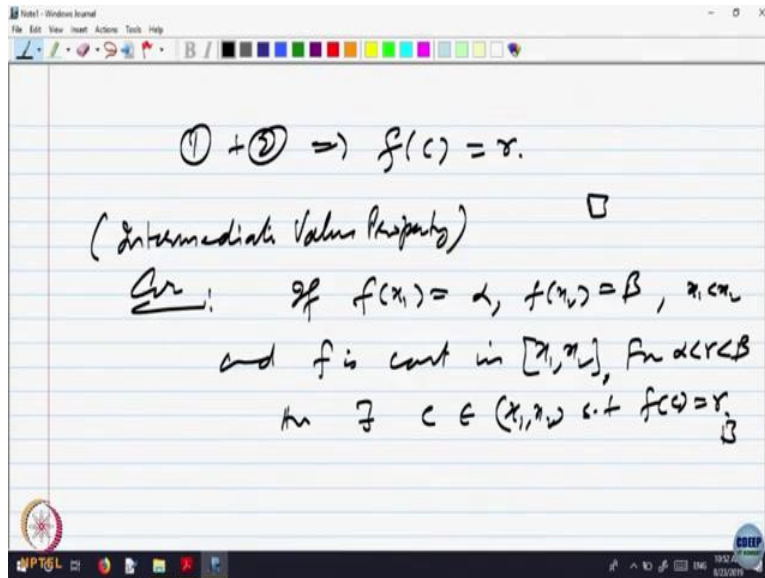 Note1 - Windows Journal
File Edit View Insert Actions Tools Help
① + ② ⇒ f(c) = r.
(Intermediate Value Property)
Cor: If f(x₁) = α, f(x₂) = β, x₁ < x₂
and f is cont in [x₁, x₂], For α < r < β
then ∃ c ∈ (x₁, x₂) s.t f(c) = r.
NPTEL
CDEEP
ENG
8/23/2019